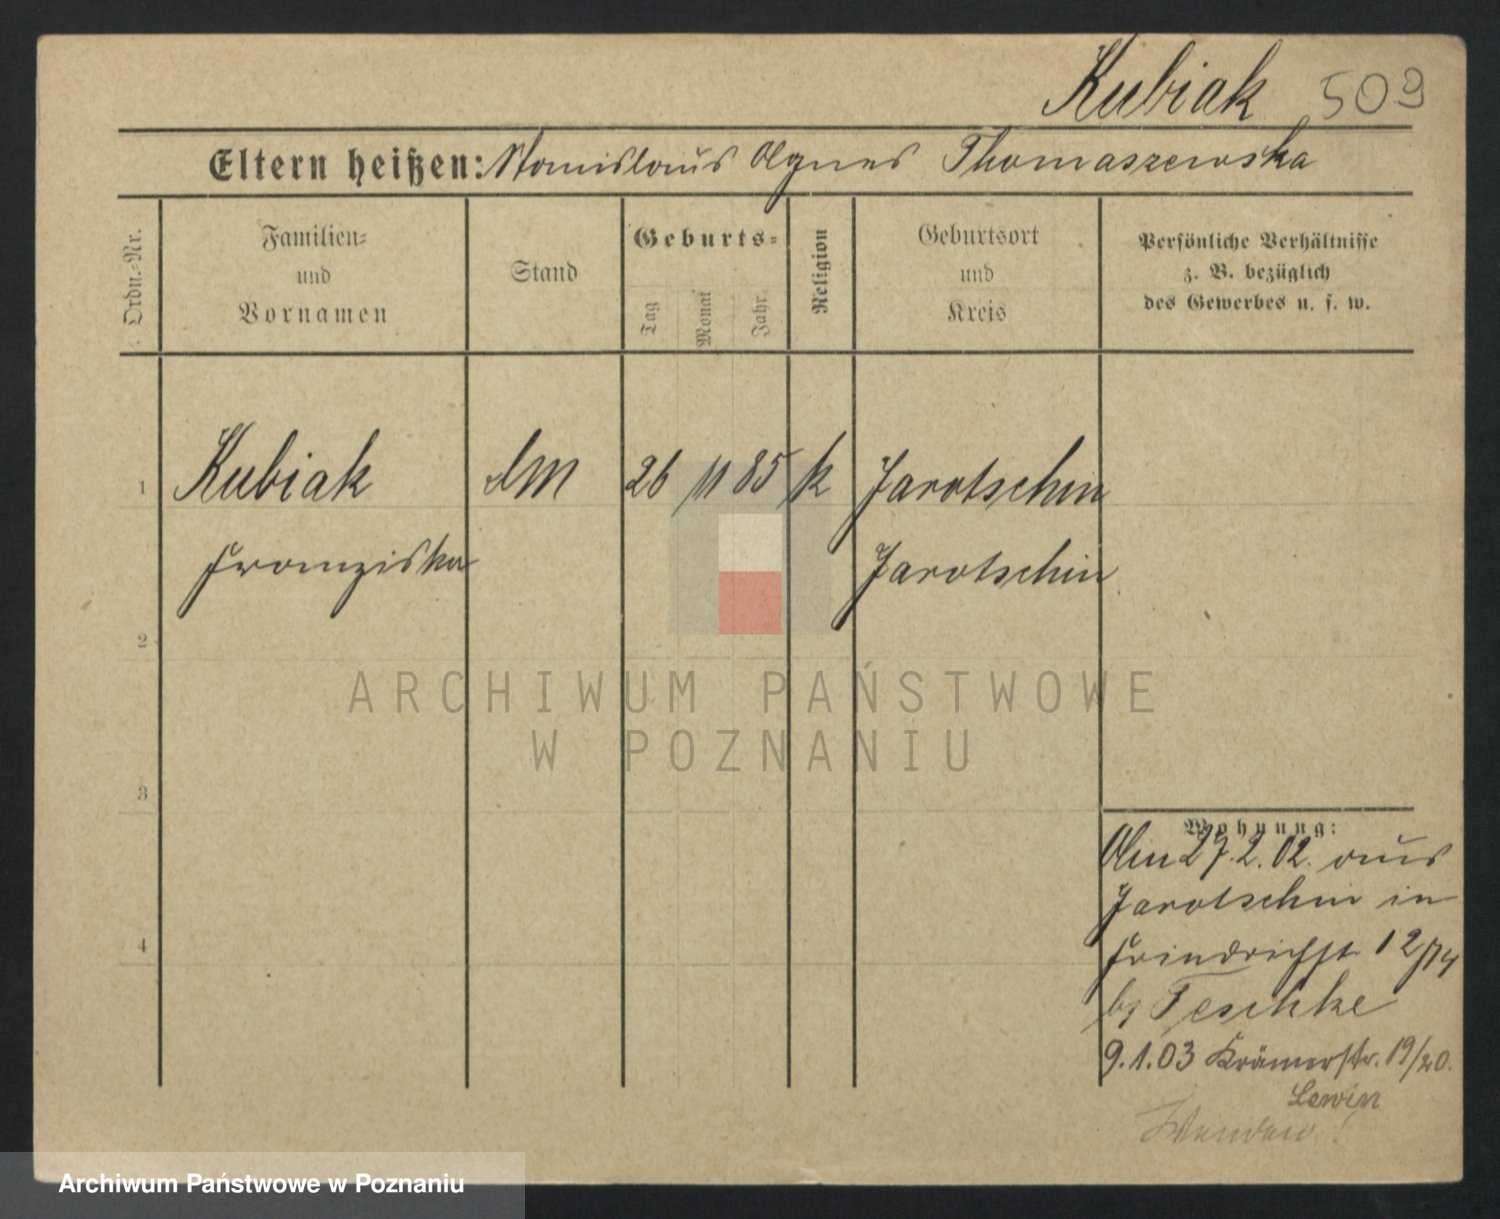 Kubiak 509
Eltern heißen: Stanislaus Agnes Thomaszewska
Ordn.-Nr.
Familien-
und
Vornamen
Stand
Geburts-
Tag
Monat
Jahr
Religion
Geburtsort
und
Kreis
Persönliche Verhältnisse
z. B. bezüglich
des Gewerbes u. s. w.
1 Kubiak dm 26 11 85 k Jarotschin
Franziska Jarotschin
2
3
4
Wohnung:
Am 27.2.02. aus
Jarotschin in
12/14
bei Teschke
9.1.03 Krämerstr. 19/20.
Lewin
Wenden!
ARCHIWUM PAŃSTWOWE
W POZNANIU
Archiwum Państwowe w Poznaniu